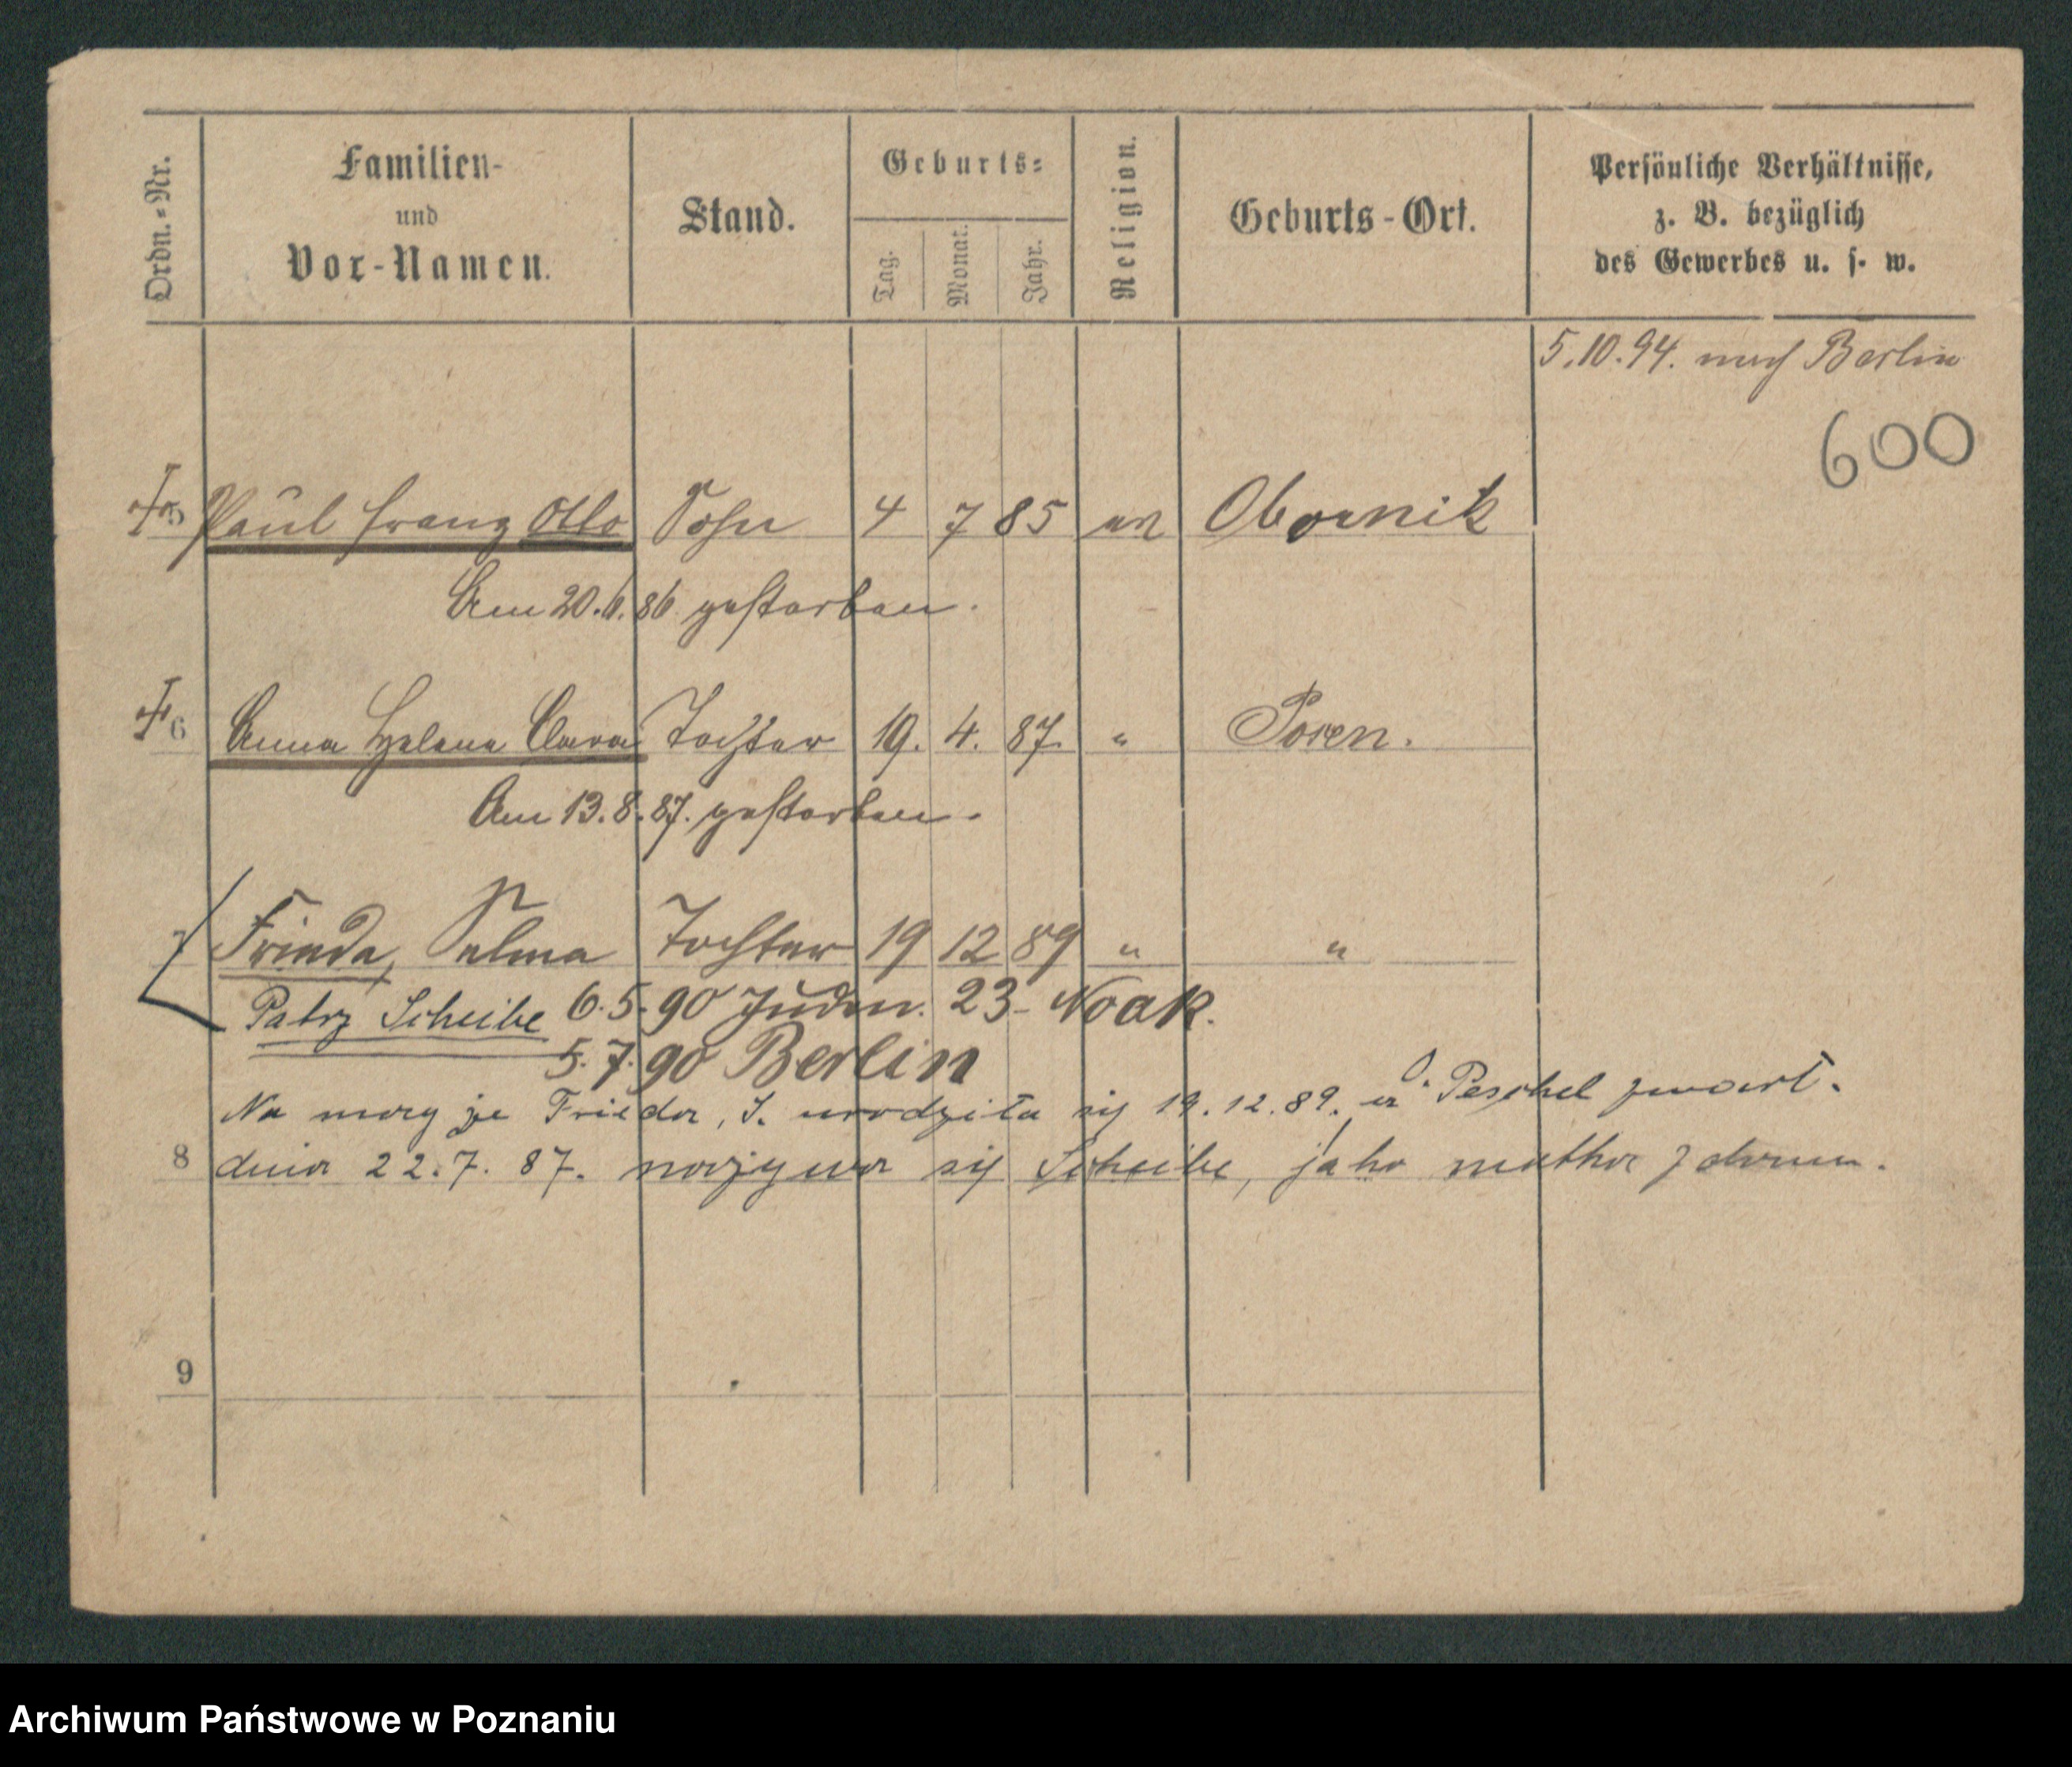 Ordn.-Nr.
Familien-
und
Vor-Namen.
Stand.
Geburts-
Tag.
Monat.
Jahr.
Religion.
Geburts-Ort.
Persönliche Verhältnisse,
z. B. bezüglich
des Gewerbes u. s. w.
5.10.94. nach Berlin
600
5 Paul Franz Otto Sohn 4 7 85 Obornik
Am 20.6.86 gestorben.
6 Anna Helene Clara Tochter 19. 4. 87. " Posen.
Am 13.8.87. gestorben.
7 Frieda, Selma Tochter 19 12 89 " "
Patrz Scheibe 6.5.90 Juden. 23 - Noak.
5.7.90 Berlin
Na mocy że Frieda, S. urodziła się 19.12.89. a O. Peschel zmarł.
8 dnia 22.7.87. nazywa się Scheibe, jako matka z domu.
9
Archiwum Państwowe w Poznaniu